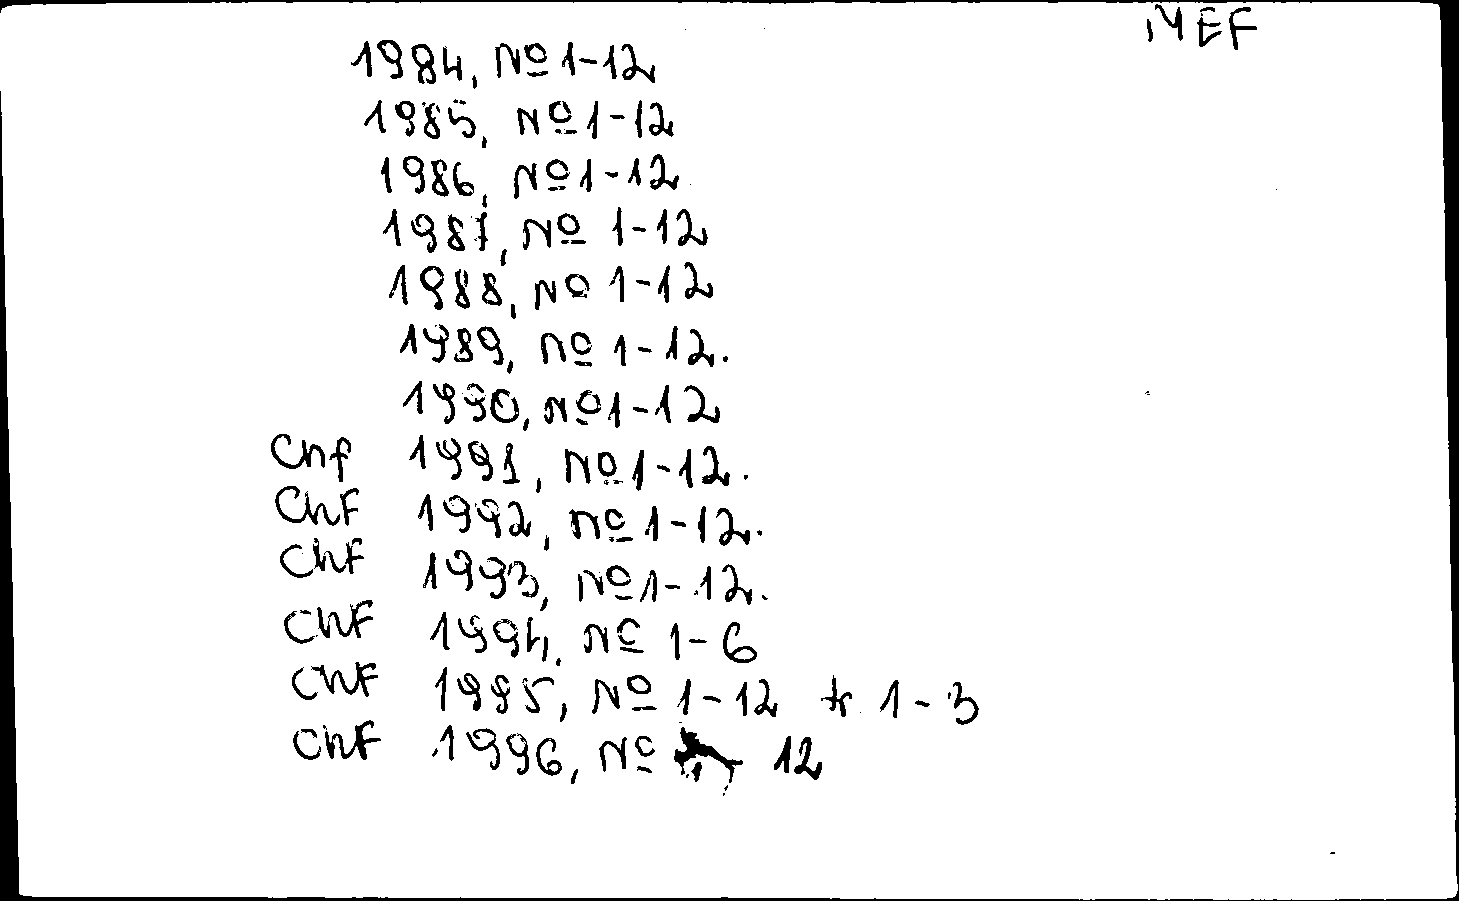 MEF
1984, № 1-12
1985, № 1-12
1986, № 1-12
1987, № 1-12
1988, № 1-12
1989, № 1-12.
1990, № 1-12
Chf 1991, № 1-12.
ChF 1992, № 1-12.
ChF 1993, № 1-12.
ChF 1994, № 1-6
ChF 1995, № 1-12 tr 1-3
ChF 1996, № 12